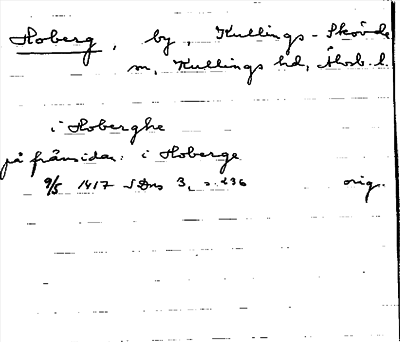 Hoberg, by, Kullings-Skövde
sn, Kullings hd, Älvsb. l.
i Hoberghe
på frånsidan: i Hoberge
9/5 1417 SDns 3, s. 236 orig.